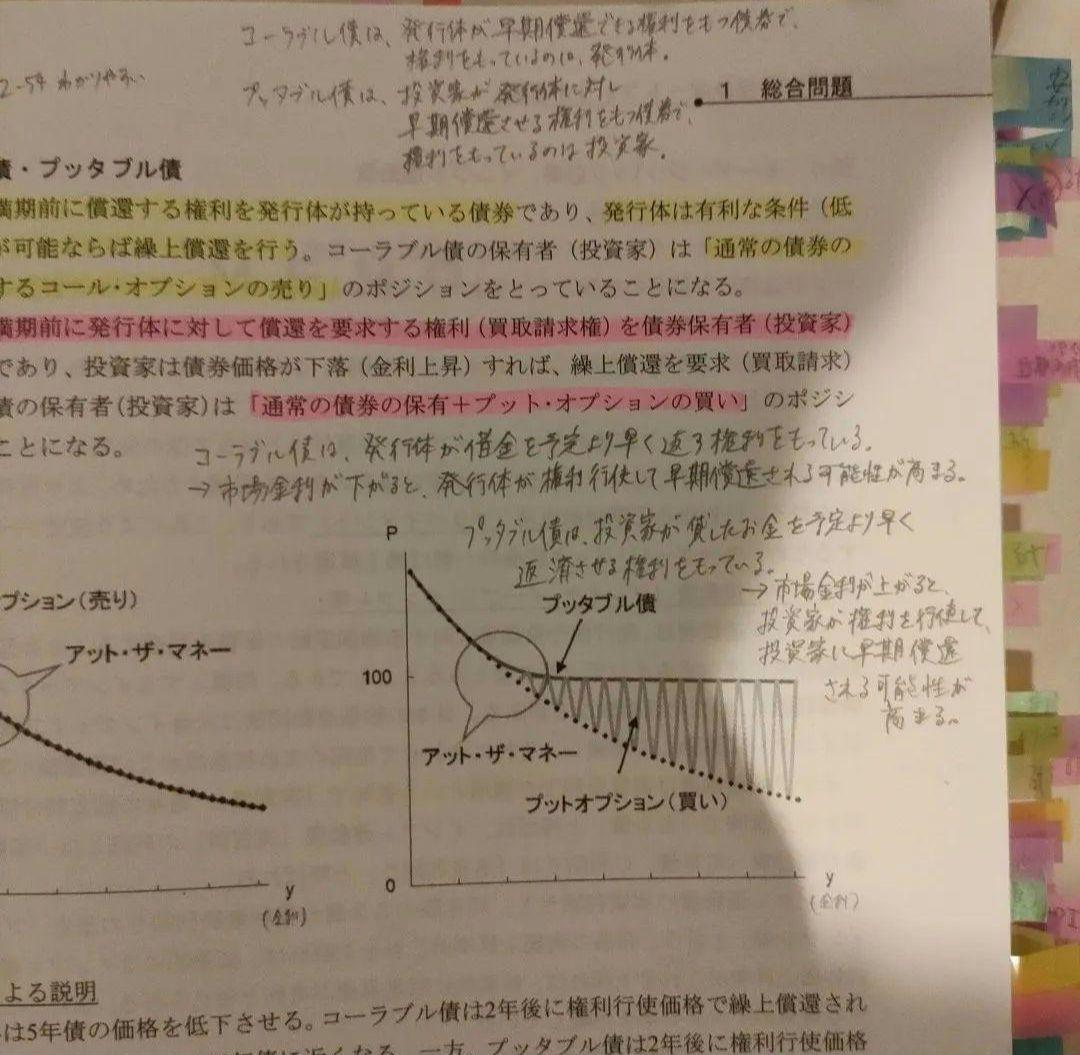 コーラブル債は、発行体が早期償還できる権利をもつ債券で、
権利をもっているのは、発行体。
2-54 わかりやすい
プッタブル債は、投資家が発行体に対し
早期償還させる権利をもつ債券で、
権利をもっているのは投資家。
1 総合問題
債・プッタブル債
満期前に償還する権利を発行体が持っている債券であり、発行体は有利な条件（低
が可能ならば繰上償還を行う。コーラブル債の保有者（投資家）は「通常の債券の
するコール・オプションの売り」のポジションをとっていることになる。
満期前に発行体に対して償還を要求する権利（買取請求権）を債券保有者（投資家）
であり、投資家は債券価格が下落（金利上昇）すれば、繰上償還を要求（買取請求）
債の保有者（投資家）は「通常の債券の保有＋プット・オプションの買い」のポジシ
ことになる。
コーラブル債は、発行体が借金を予定より早く返す権利をもっている。
→市場金利が下がると、発行体が権利行使して早期償還される可能性が高まる。
プッタブル債は、投資家が貸したお金を予定より早く
返済させる権利をもっている。
→市場金利が上がると、
投資家が権利を行使して、
投資家に早期償還
される可能性が
高まる。
プション（売り）
アット・ザ・マネー
y
(金利)
P
プッタブル債
100
アット・ザ・マネー
プットオプション（買い）
0
y
(金利)
よる説明
は5年債の価格を低下させる。コーラブル債は2年後に権利行使価格で繰上償還され
年債に近くなる。一方、プッタブル債は2年後に権利行使価格